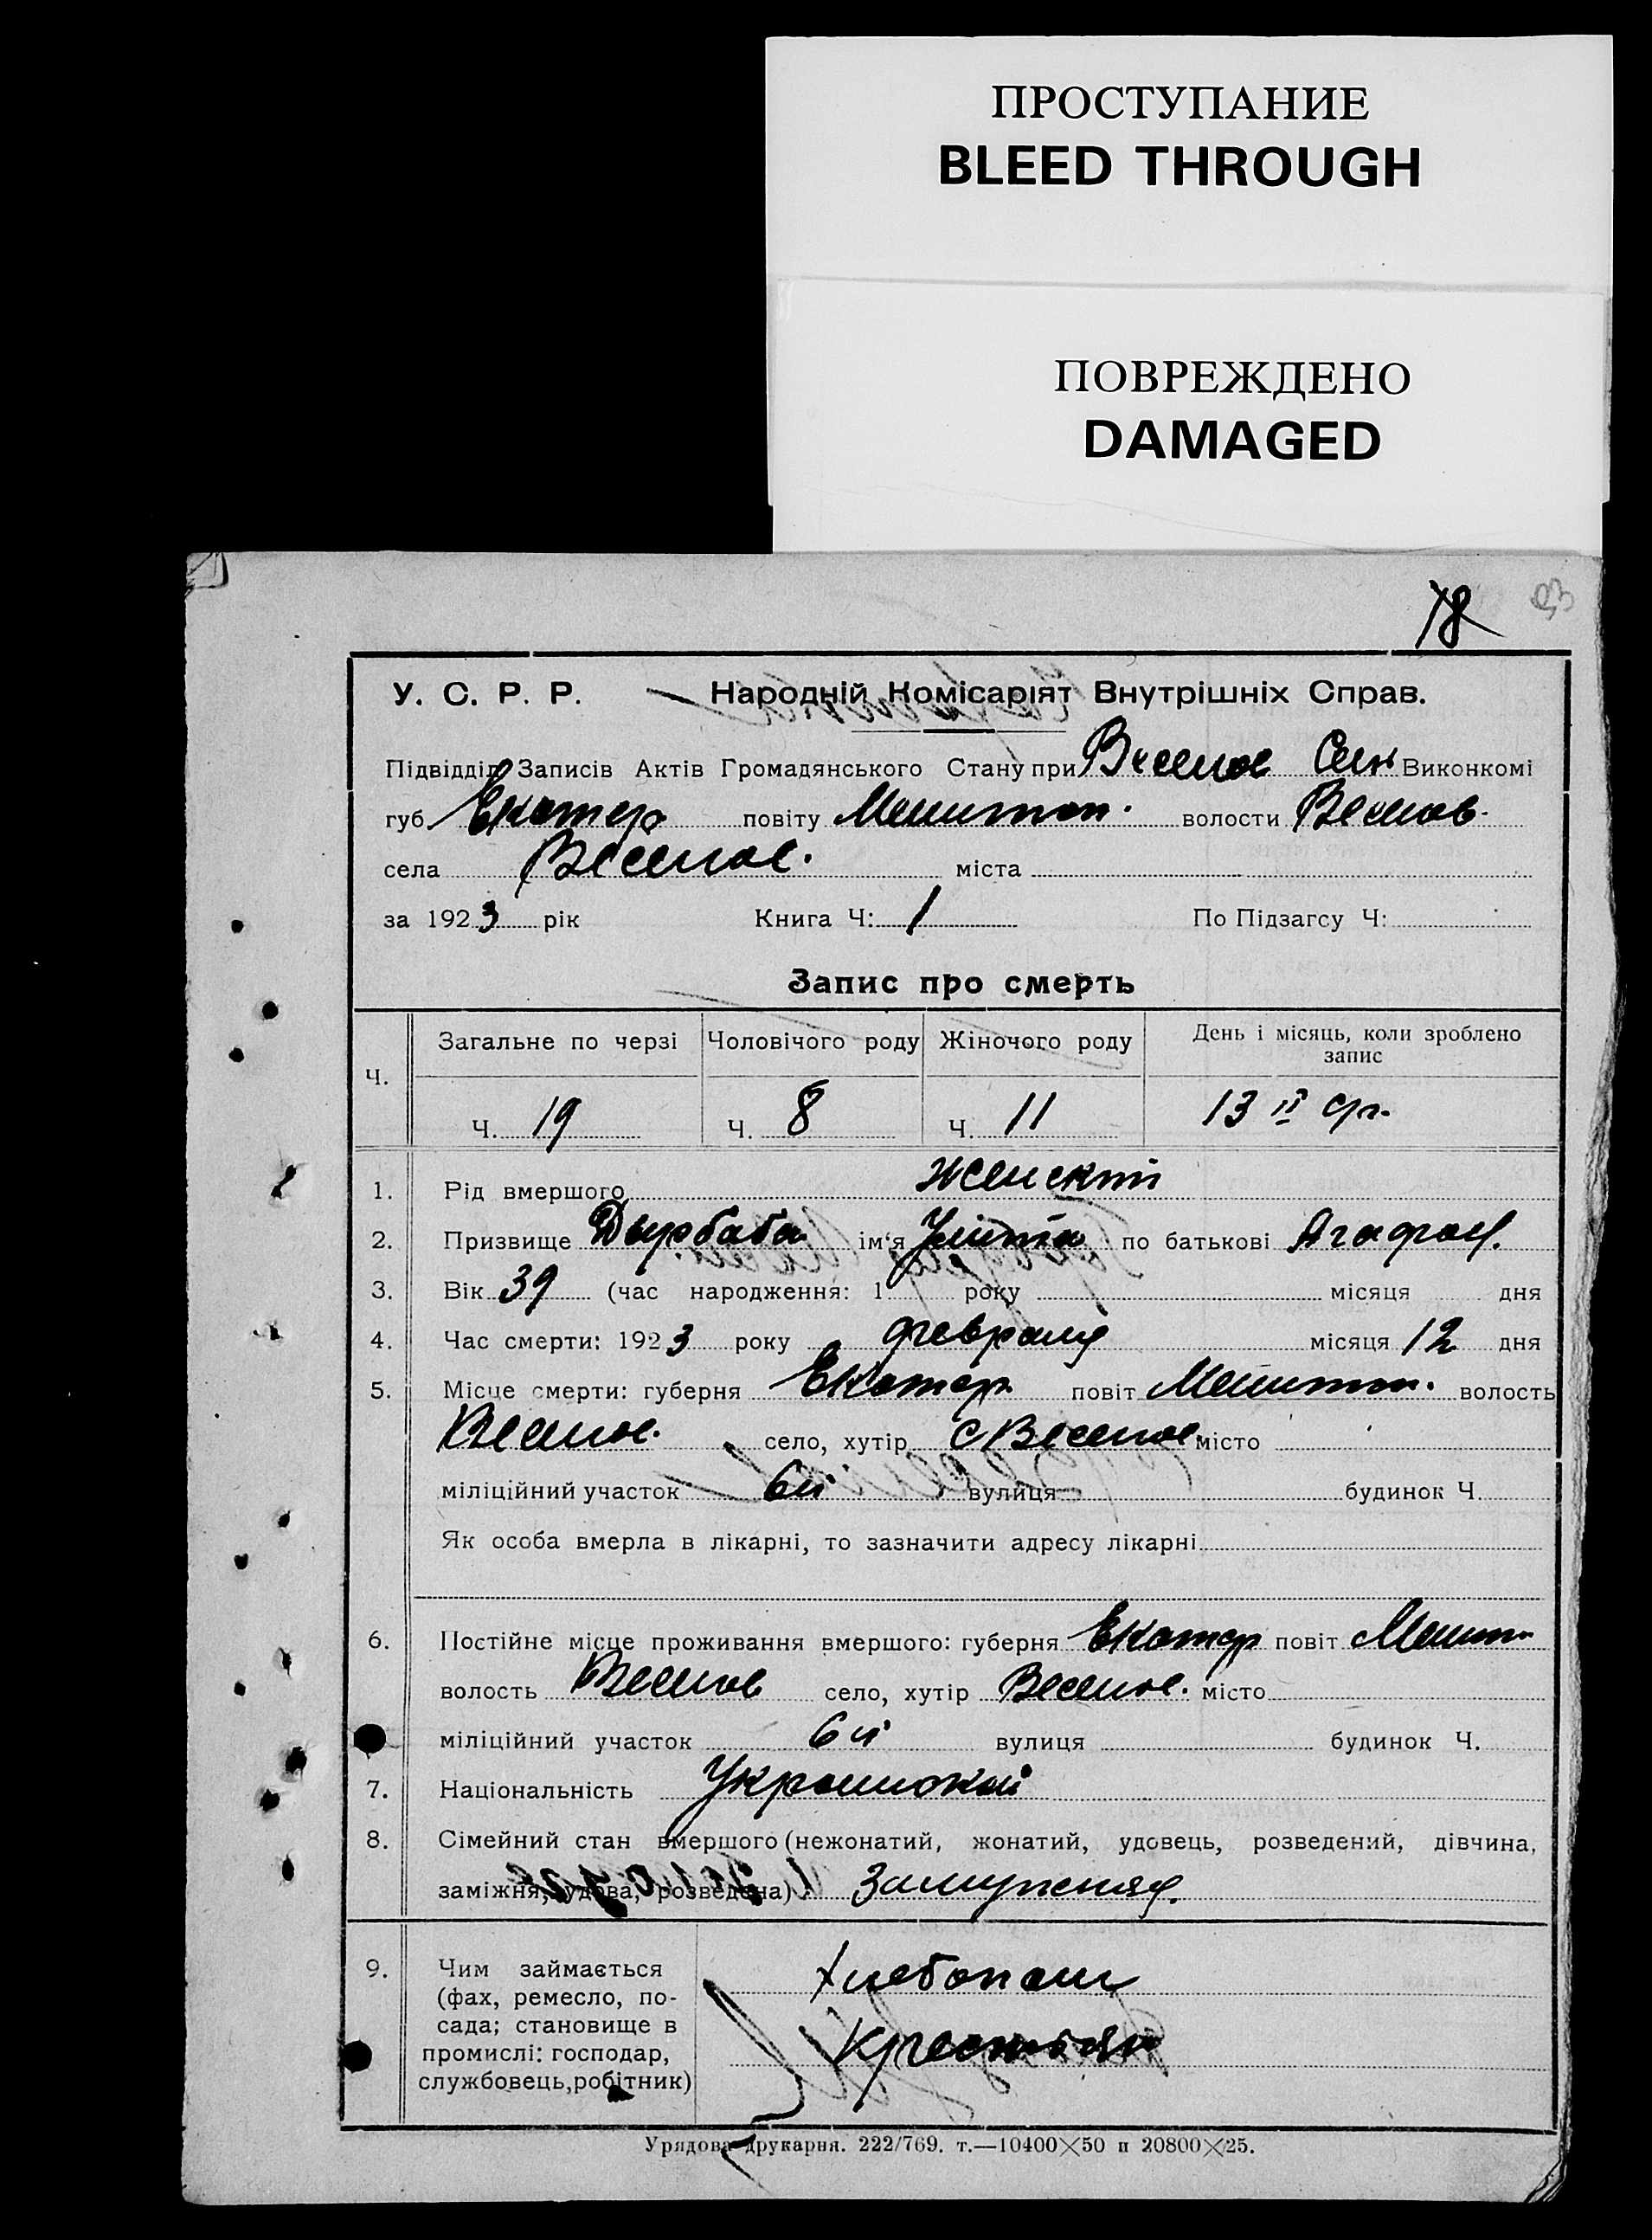 ПРОСТУПАНИЕ
BLEED THROUGH
ПОВРЕЖДЕНО
DAMAGED
78
У. С. Р. Р. Народній Комісаріят Внутрішніх Справ.
Підвідділ Записів Актів Громадянського Стану при Веселое Виконкомі
губ. Екатер повіту Мелитоп. волости Веселов.
села Веселое. міста
за 1923 рік Книга Ч: 1 По Підзагсу Ч:
Запис про смерть
Ч. Загальне по черзі Чоловічого роду Жіночого роду День і місяць, коли зроблено
запис
Ч. 19 Ч. 8 Ч. 11 13 II
1. Рід вмершого Женский
2. Призвище Дырбаба ім'я Улита по батькові Агафон.
3. Вік 39 (час народження: 1 року місяця дня
4. Час смерти: 1923 року февраля місяця 12 дня
5. Місце смерти: губерня Екатер повіт Мелитоп. волость
Веселое. село, хутір с Веселое місто
міліційний участок 6й вулиця будинок Ч.
Як особа вмерла в лікарні, то зазначити адресу лікарні
6. Постійне місце проживання вмершого: губерня Екатер повіт Мелит
волость Веселов село, хутір Веселое. місто
міліційний участок 6й вулиця будинок Ч.
7. Національність
8. Сімейний стан вмершого (нежонатий, жонатий, удовець, розведений, дівчина,
заміжня, удова, розведена) Замужняя.
9. Чим займається
(фах, ремесло, по-
сада; становище в
промислі: господар,
службовець, робітник)
Хлебопаш
Крестьян
Урядова друкарня. 222/769. т.—10400×50 п 20800×25.